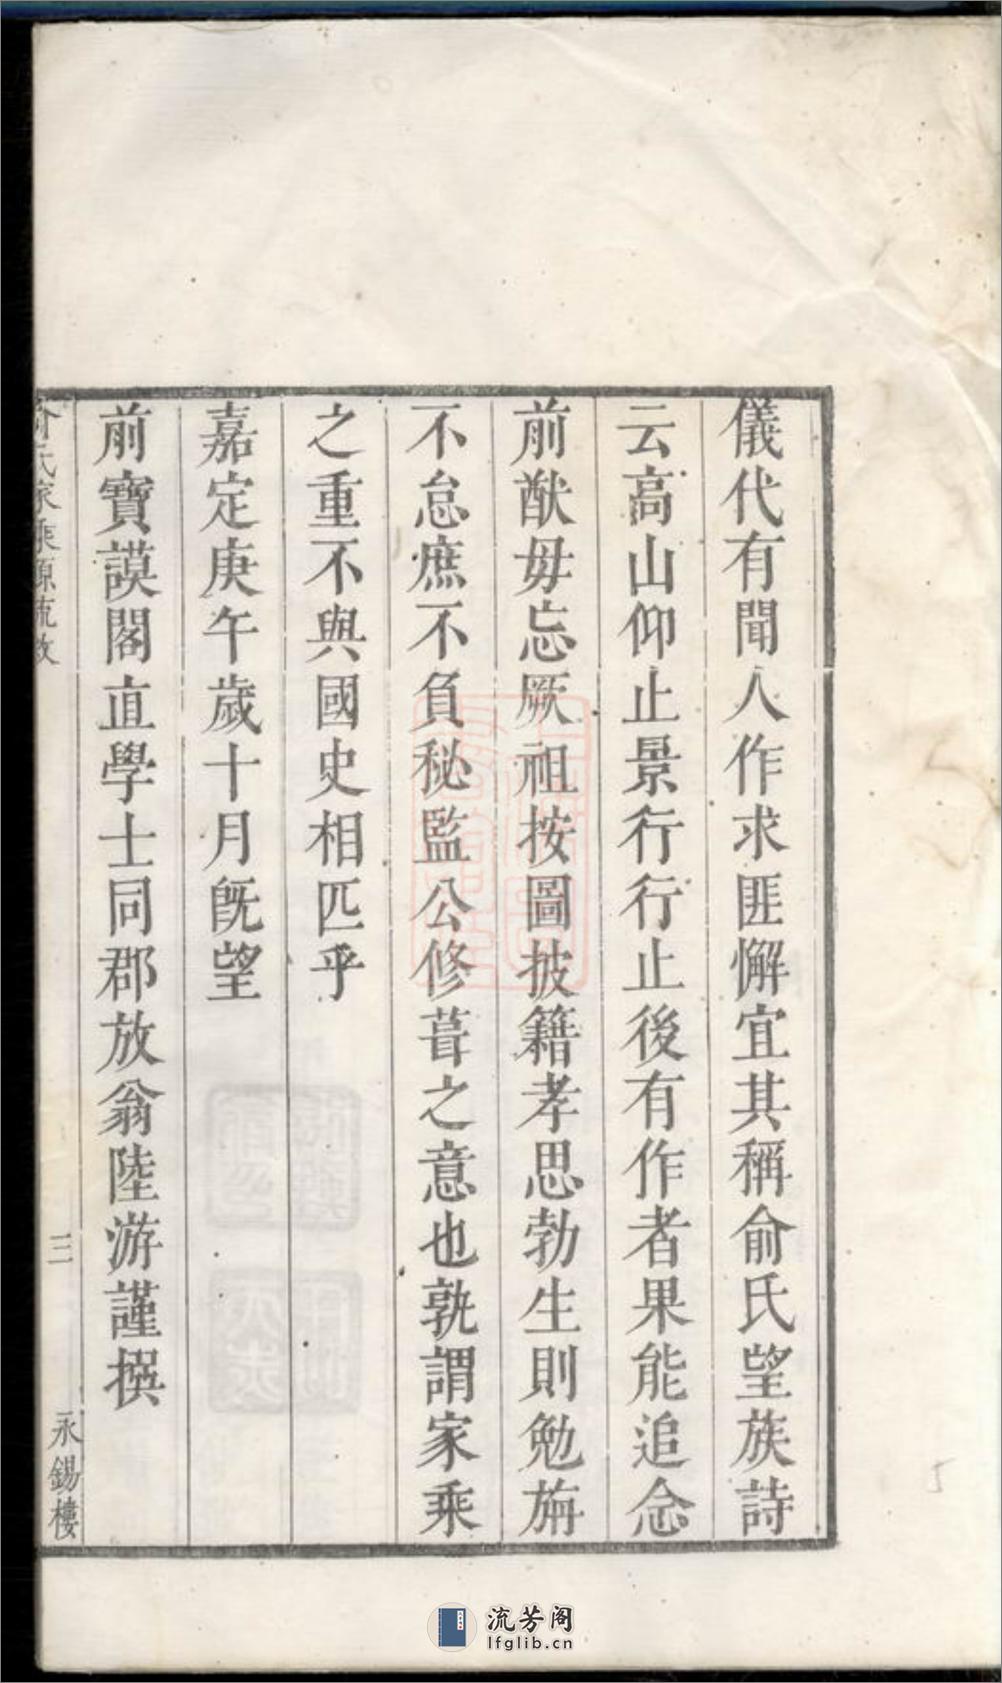 儀代有聞人作求匪懈宜其稱俞氏望族詩
云高山仰止景行行止後有作者果能追念
前猷毋忘厥祖按圖披籍孝思勃生則勉旃
不怠庶不負秘監公修葺之意也孰謂家乘
之重不與國史相匹乎
嘉定庚午歲十月既望
前寶謨閣直學士同郡放翁陸游謹撰
氏家乘源流敘
三
永錫樓
流芳阁
lfglib.cn